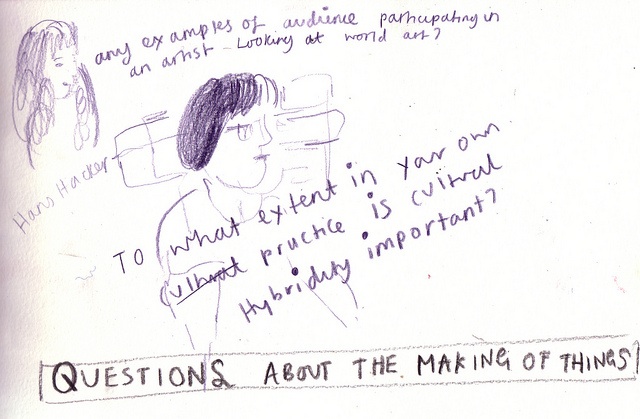 any examples of audience participating in
an artist - Looking at world art?
Hans Hacker
To what extent in your own
cultural practice is cultural
Hybridity important?
QUESTIONS ABOUT THE MAKING OF THINGS